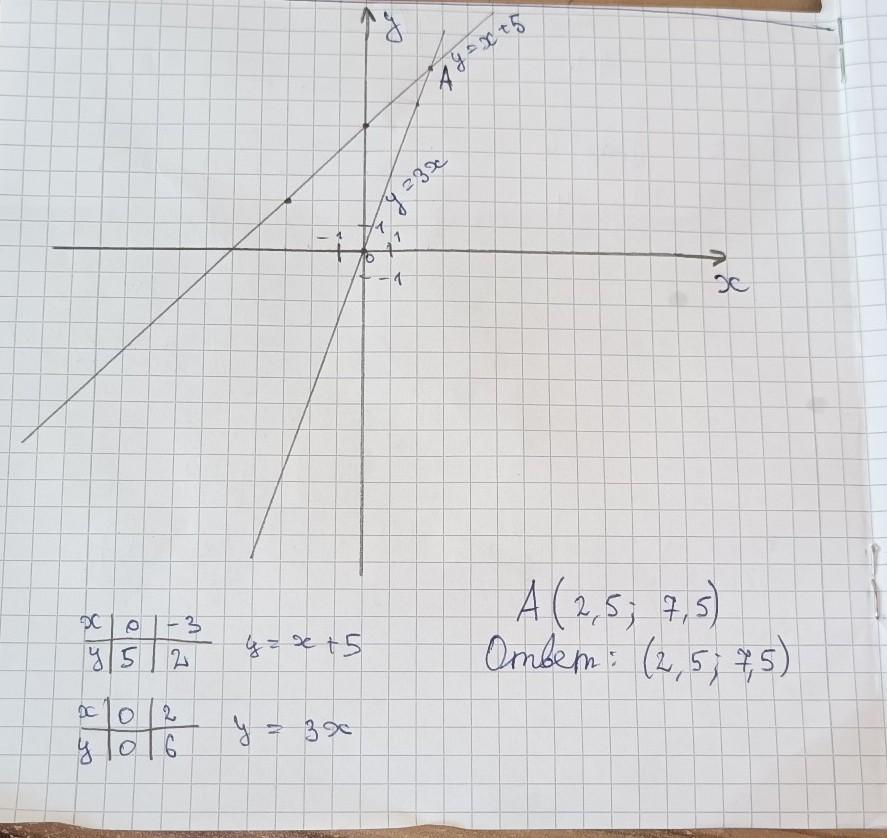 y
A
y = x + 5
y = 3x
-1
1
1
0
-1
x
x | 0 | -3
y | 5 | 2
y = x + 5
x | 0 | 2
y | 0 | 6
y = 3x
A (2,5; 7,5)
Ответ: (2,5; 7,5)